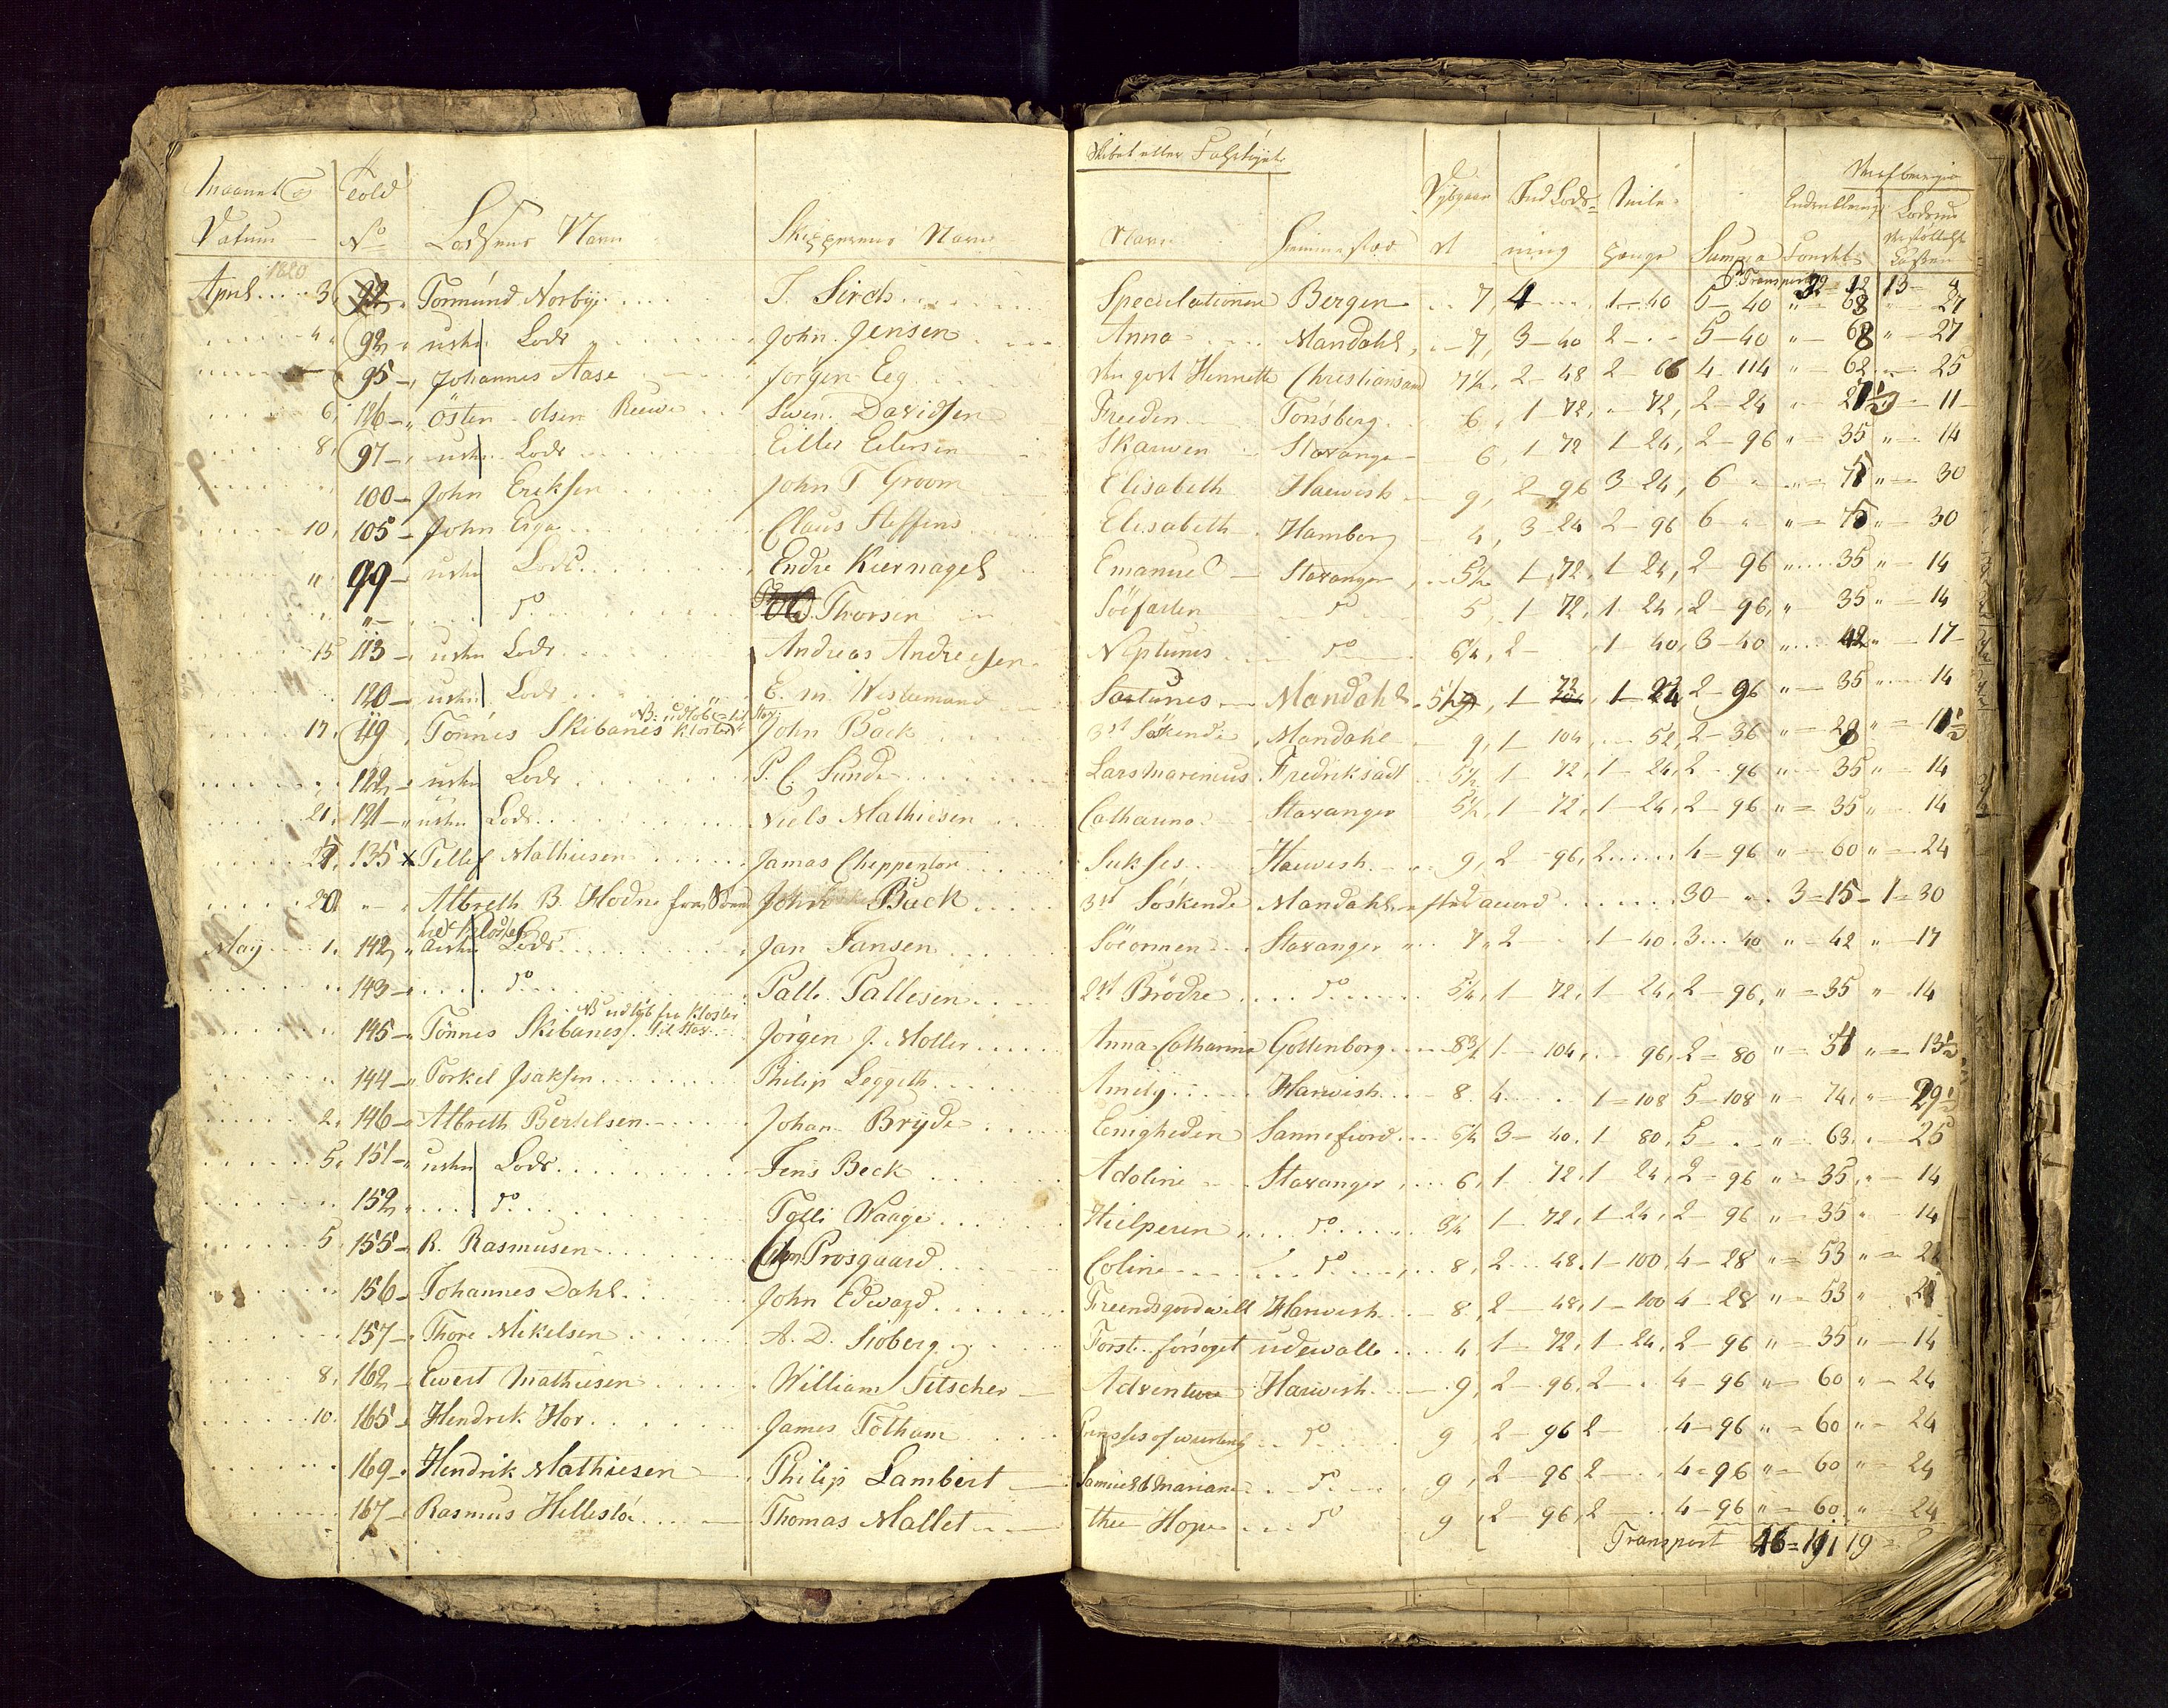 Maanet og Datum Told No Lodsens Navn Skipperens Navn
Skibet eller Fartøyets
Navn Hiemmestæd Dybgaaende Ind Lodsning Miile Penge Summa
1820
Transport 32 12 13
April 3 Tormund Norbye J. Sirch
Speculationen Bergen 7 4 1-40 5-40 68 27
4 92 Lods John Jensen
Anna Mandahl 7 3-40 2 5-40 68 27
95 Johannes Aase Jørgen Eeg
Henrette Christiansand 7½ 2-48 2-66 4-114 62 25
6 126 Østen Olsen Reeve Swen Davidsen
Freeden Tønsberg 6 1-72 72 2-24 27½ 11
8 97 Lods Eiller Eilersen
Skarven Stavanger 6 1-72 1-24 2-96 35 14
100 John Eriksen John T Groom
Elisabeth Harwish 9 2-96 3-24 6 75 30
10 105 John Eiga Claus Steffens
Elisabeth Hamborg 4 3-24 2-96 6 75 30
" 99 Lods Endre Kiernagel
Emanuel Stavanger 5½ 1-72 1-24 2-96 35 14
" do Thorsen
Söefasten do 5 1-72 1-24 2-96 35 14
15 113 Lods Andreas Andreesen
Neptunus do 6½ 2 1-40 3-40 42 17
120 Lods E. M. Westermand
Fortunes Mandahl 5½ 1-72 1-24 2-96 35 14
17 119 Tönnes Skibanes John Back
NB: udlob til Kloster
3de Søskende Mandahl 9 1-104 52 2-36 29 11½
122 Lods P. C. Sunde
Lars Marenius Fredriksadt 5½ 1-72 1-24 2-96 35 14
21 121 Lods Niels Mathiesen
Catharina Stavanger 5½ 1-72 1-24 2-96 35 14
135 x Tellef Mathiesen Jamas Cheppenlor
Sukses Harwish 9 2-96 2 4-96 60 24
20 Albreth B. Hodne John Back
ud Kloster
3de Søskende Mandahl accord 30 3-15 1-30
May 1 142 Lods Jan Jansen
Söeormen Stavanger 7 2 1-40 3-40 42 17
143 do Palle Pallesen
2de Brødre do 5½ 1-72 1-24 2-96 35 14
NB udløb fra Kloster til Stav
145 Tönnes Skibanes Jørgen J. Møller
Anna Catharina Gottenborg 8¾ 1-104 96 2-80 34 13½
144 Torkel Isaksen Philip Leggeth
Amily Harwish 8 4 1-108 5-108 74 29½
2 146 Albreth Bertelsen Johan Bryde
Eenigheden Sannefiord 6½ 3-40 1-80 5 63 25
5 151 Lods Jens Beck
Adoline Stavanger 6 1-72 1-24 2-96 35 14
152 do Tolli Waage
Hielperen do 1-72 1-24 2-96 35 14
5 155 R. Rasmusen Prosgaard
Coline do 8 2-48 1-100 4-28 53
156 Johannes Dahl John Edward
Freendsgoodwill Harwish 8 2-48 1-100 4-28 53
157 Thore Mikelsen A. D. Sioberg
Förste forsøget udewalle 4 1-72 1-24 2-96 35 14
8 162 Ewert Mathiesen William Sitscher
Adventure Harwish 9 2-96 2 4-96 60 24
10 165 Hendrik Hor James Totham
do 9 2-96 2 4-96 60 24
169 Hendrik Mathiesen Philip Lambert
Samuel & Mariane do 9 2-96 2 4-96 60 24
167 Rasmus Hillesló Thomas Mallet
the Hope do 9 2-96 2 4-96 60 24
Transport 46=19 19